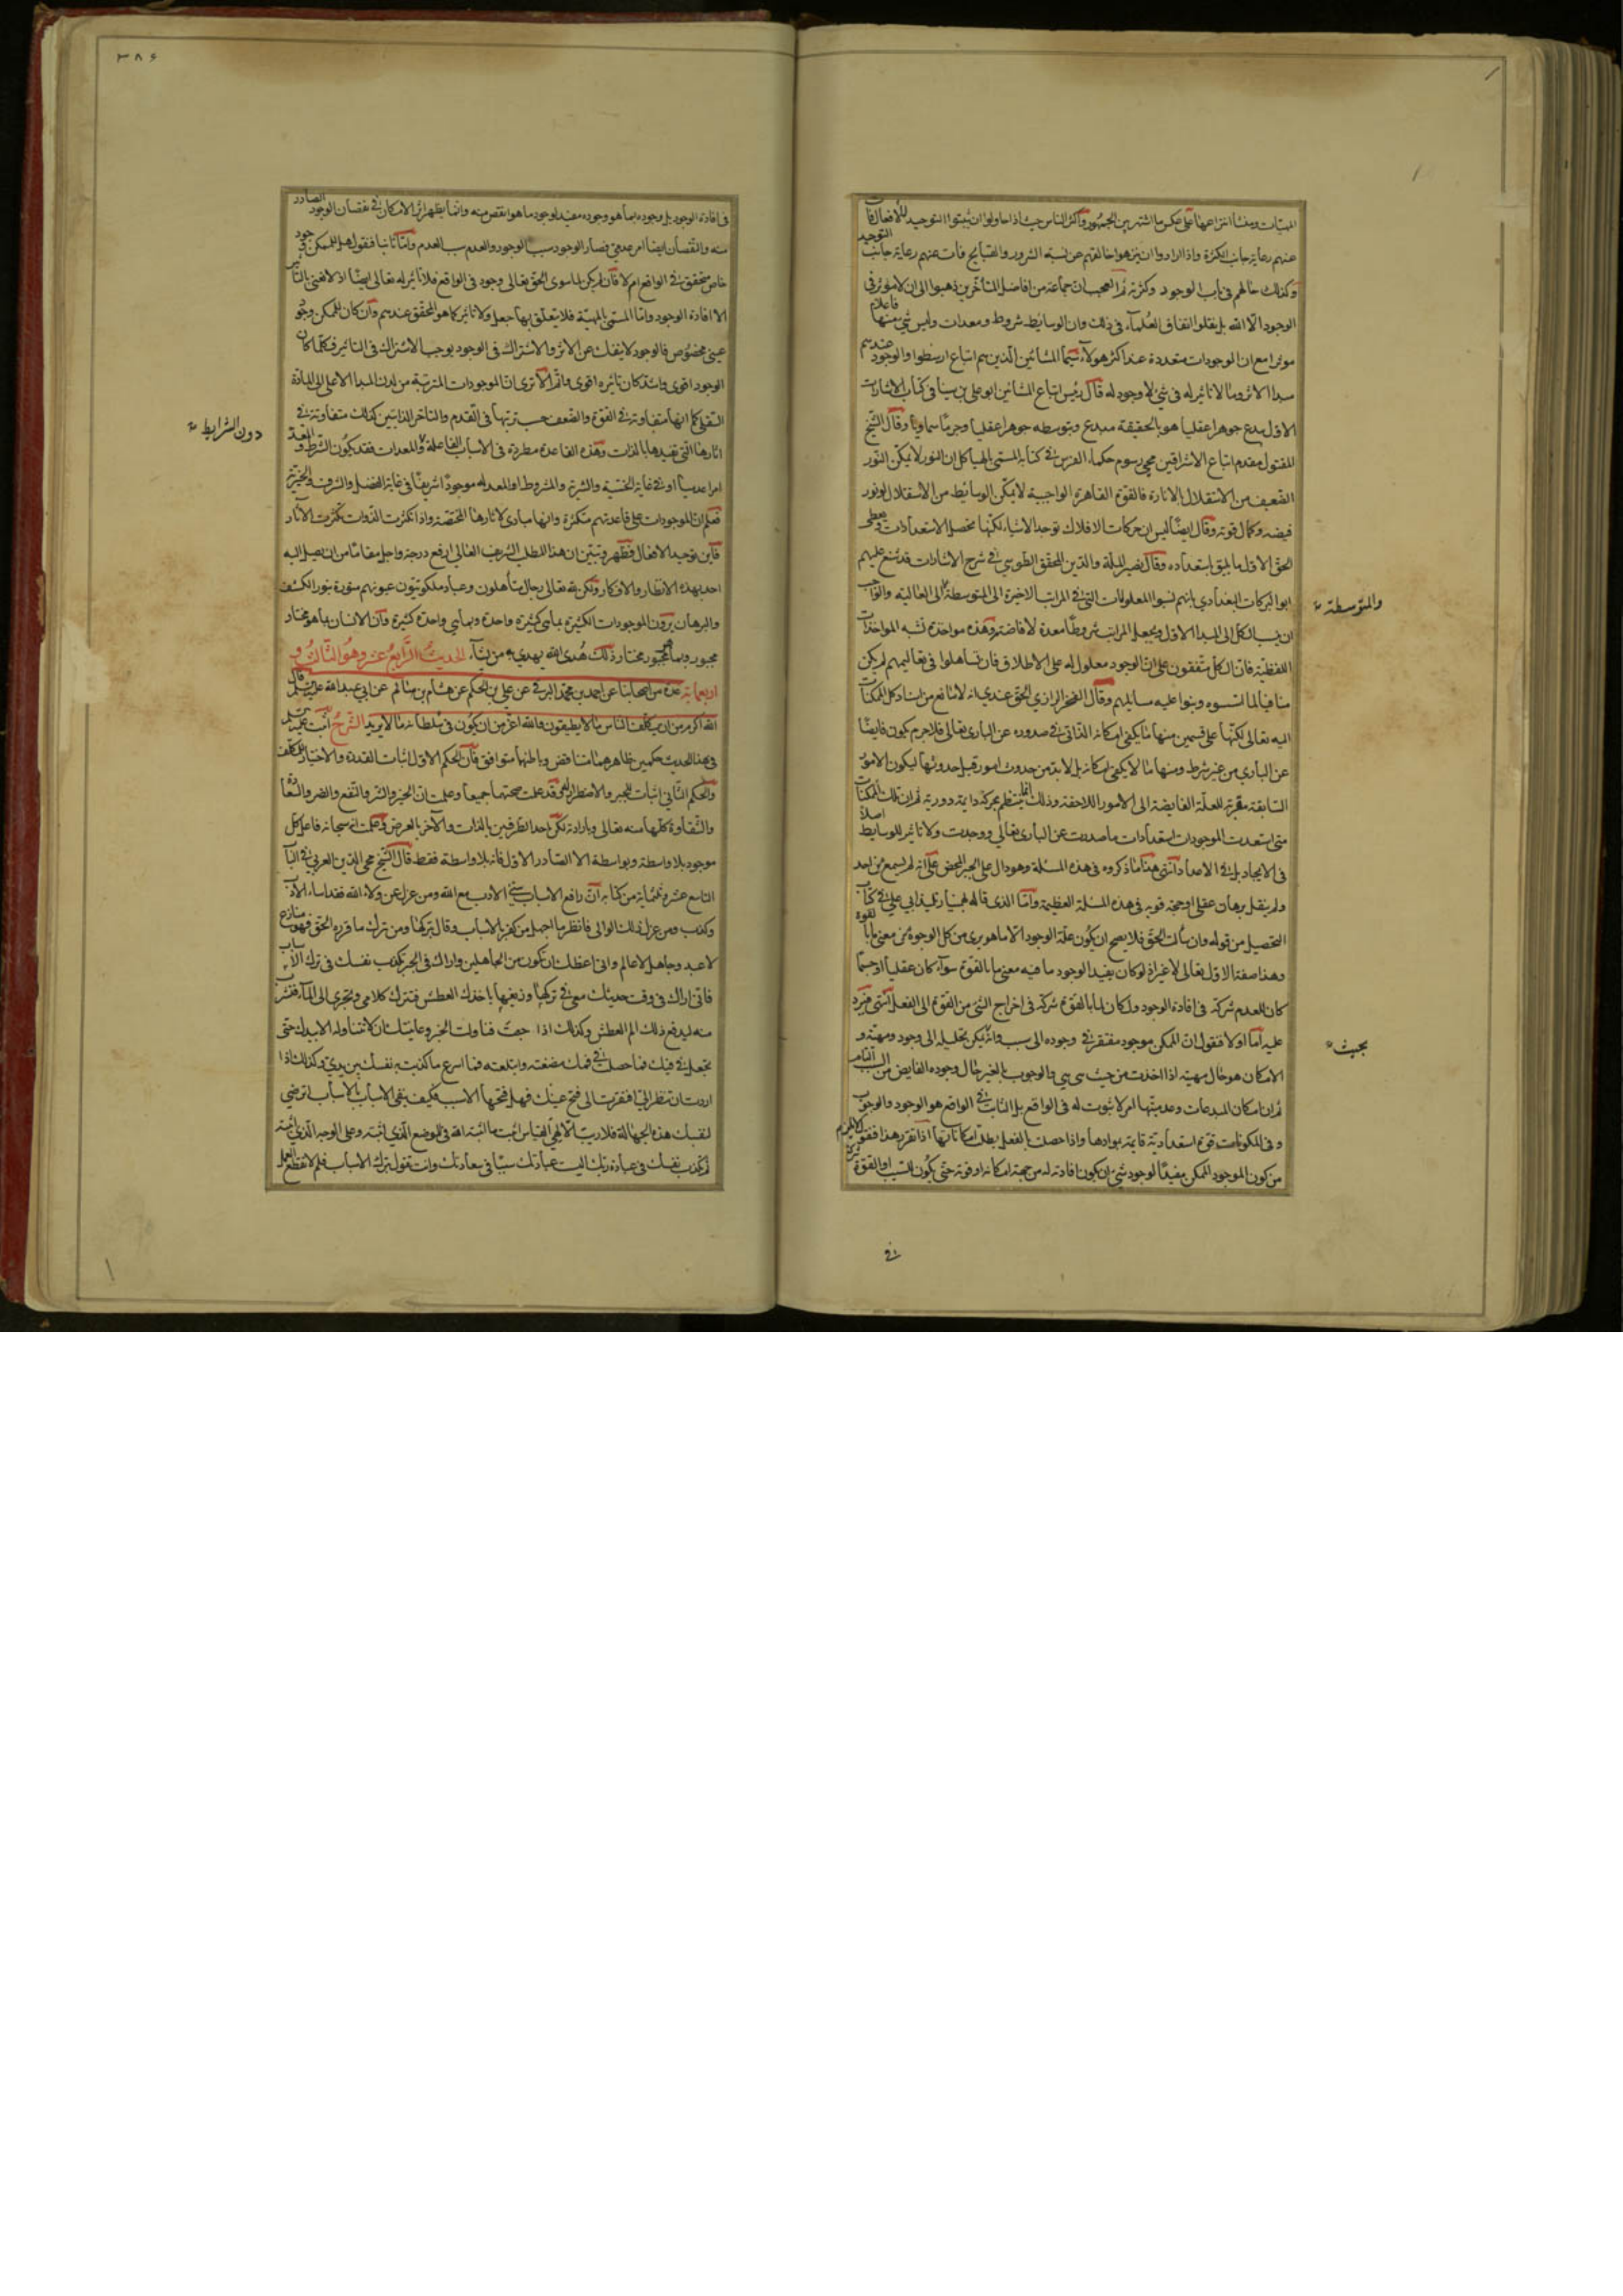 الهيّات ومنشأ انتزاعها على عكس ما اشتهر بين الجمهور وأكثر الناس حيث اذا حاولوا ان يثبتوا التوحيد للأفعال فات
عنهم رعاية جانب الكثرة واذا ارادوا ان ينزهوا خالقهم عن نسبة الشرور والقبايح فات عنهم رعاية جانب التوحيد
وكذلك حالهم في باب الوجود وكثرته ثم العجب ان جماعة من افاضل المتأخرين ذهبوا الى ان لا مؤثر في
الوجود الّا الله بل نقلوا اتفاق العلماء في ذلك وان الوسايط شروط ومعدات وليس شئ منها فاعلا
موثرا مع ان الوجودات متعددة عند اكثر هولاء سيّما المشائين الّذين هم اتباع ارسطوا والوجود عندهم
مبدا الاثر وما لا تاثير له في شئ لا وجود له قال رئيس اتباع المشائين ابو علي بن سينا في كتاب الاشارات
الاول يبدع جوهرا عقليا هو بالحقيقة مبدع وبتوسطه جوهرا عقليا وجرما سماويا وقال الشيخ
المقتول مقدم اتباع الاشراقيين محيي رسوم حكماء الفرس في كتابه المسمّى بالهياكل ان النور لا يمكّن النور
الضعيف من الاستقلال بالانارة فالقوة القاهرة الواجبية لا يمكّن الوسايط من الاستقلال لوفور
فيضه وكمال قوته وقال ايضا ليس ان حركات الافلاك توجد الاشياء لكنها تحصل الاستعدادات ويعطى
الحق الاول ما يليق باستعداده وقال نصير الملة والدين المحقق الطوسي في شرح الاشارات قد شنع عليهم
ابو البركات البغدادي بانهم نسبوا المعلولات التي في المراتب الاخيرة الى المتوسطة الى العالية والواجب
والمتوسطة
ان ينسب الكل الى المبدا الاول ويجعل المراتب شروطا معدة لافاضته وهذه مواخذة تشبه المواخذات
اللفظية فان الكل متفقون على ان الوجود معلول له على الاطلاق فان تساهلوا في تعاليمهم لم يكن
منافيا لما اسسوه وبنوا عليه مسايلهم وقال الفخر الرازي الحق عندي انه لا مانع من اسناد كل الممكنات
اليه تعالى لكنها على قسمين منها ما يكفى امكانه الذاتي في صدوره عن الباري تعالى فلا جرم يكون فايضا
عن الباري من غير شرط ومنها ما لا يكفي امكانه بل لابد من حدوث امور قبل حدوثها ليكون الامور
السابقة مقربة للعلة الفايضة الى الامور اللاحقة وذلك انما ينتظم بحركة دايمة دورية ثم ان تلك الممكنات
متى استعدت للموجودات استعدادات ما صدرت عن البارى تعالى ووجدت ولا تاثير للوسايط اصلا
في الايجاد بل في الاعداد انتهى هذا ما ذكروه في هذه المسئلة وهو دال على الجبر المحض على انه لم يسمع من احد
ولم ينقل برهان عقلي او حجة قويه في هذه المسئلة العظيمة وامّا الذي قاله بهمنيار تلميذ ابي علي في كتاب
التحصيل من قوله وان سألت الحق فلا يصح ان يكون علّة الوجود الا ما هو برى من كل الوجوه من معنى ما بالقوة
وهذا صفة الاول تعالى لا غير اذ لو كان يفيد الوجود ما فيه معنى ما بالقوة سواء كان عقليا او جسما
كان للعدم شركة في افادة الوجود ولكان لما بالقوة شركة في اخراج الشئ من القوة الى الفعل انتهى فيرد
عليه اما اولا فنقول ان الممكن موجود مفتقر في وجوده الى سبب وانه يمكن تحليله الى وجود ومهيّة و
بحيث
الامكان هو حال مهيته اذا اخذت من حيث هي هي والوجوب بالغير حال وجوده الفايض من السبب التام
ثم ان امكان المبدعات وعدميتها امر لا ثبوت له في الواقع بل الثابت في الواقع هو الوجود والوجوب
وفي المكونات قوة استعدادية قايمة بموادها واذا حصلت بالفعل بطلت امكاناتها اذا تقرر هذا فنقول لا يلزم
من كون الموجود الممكن مفيدا لوجود شئ ان يكون افادته له من جهة امكانه او قوته حتى يكون للسبب او القوة شركة
في
٣٨۶
في افادة الوجود بل وجوده بما هو وجوده مفيد لوجود ما هو انقص منه وانما يظهر اثر الامكان في نقصان الوجود الصادر
منه والنقصان ايضا امر عدمي فصار الوجود سبب الوجود والعدم سبب العدم وامّا ثانيا فنقول هل للممكن وجود
خاص متحقق في الواقع ام لا فان لم يكن لما سوى الحق تعالى وجود في الواقع فلا تاثير له تعالى ايضا اذ لا نعني بالتاثير
الا افادة الوجود واما المسمّى بالمهيّة فلا يتعلق بها جعل ولا تاثير كما هو المحقق عندهم وان كان للممكن وجود
عيني مخصوص فالوجود لا ينفك عن الاثر والاشتراك في الوجود يوجب الاشتراك في التاثير فكلما كان
الوجود اقوى واشد كان تاثيره اقوى واتم الا ترى ان الموجودات المترتبة من لدن المبدا الاعلى الى المادة
السفلى كما انها متفاوتة في القوة والضعف حسب ترتبها في التقدم والتاخر الذاتيين كذلك متفاوتة في
اثارها التي تفيدها بالذات وهذه القاعدة مطردة في الاسباب الفاعلة والمعدات فقد يكون الشرط والمعد
دون الشرايط
امرا عدميا او في غاية الخسّية والشرية والمشروط او المعد له موجودا شريفا في غاية الفضل والشرف والخيرية
فعلم ان للموجودات على قاعدتهم متكثرة وانها مبادي لاثارها المختصة واذا تكثرت الذوات تكثرت الآثار
فاين توحيد الافعال فظهر وتبين ان هذا المطلب الشريف العالي ارفع درجة واجل مقاما من ان يصل اليه
احد بهذه الانظار والافكار ولكن لله تعالى رجال متأهلون وعباد ملكوتيون عيونهم منورة بنور الكشف
والبرهان يرون الموجودات الكثيرة بما هي كثيرة واحدة وبما هي واحدة كثيرة وان الانسان بما هو مختار
مجبور وبما هو مجبور مختار ذلك هدى الله يهدي به من يشاء الحديث الرابع عشر وهو الثالث و
اربعمائة عدة من اصحابنا عن احمد بن محمد البرقي عن علي بن الحكم عن هشام بن سالم عن ابي عبد الله عليه السلم قال
الله اكرم من ان يكلف الناس ما لا يطيقون والله اعز من ان يكون في سلطانه ما لا يريد الشرح اثبت عليه السلم
في هذا الحديث حكمين ظاهرهما متناقض وباطنهما متوافق فان الحكم الاول اثبات القدرة والاختيار للمكلف
والحكم الثاني اثبات للجبر والاضطرار له وقد علمت صحتهما جميعا وعلمت ان الخير والشر والنفع والضر والسعادة
والشقاوة كلها منه تعالى وبارادته لكن احد الطرفين بالذات والآخر بالعرض وعلمت انه سبحانه فاعل كل
موجود بلا واسطة وبواسطة الا الصادر الاول فانه بلا واسطة فقط قال الشيخ محي الدين العربي في الباب
التاسع عشر وثلثمائة من كتابه ان رافع الاسباب سيئ الادب مع الله ومن عزل من ولاه الله فقد اساء الادب
وكذب ومن عزل ذلك الوالي فانظر ما اجهل من كفر بالاسباب وقال بتركها ومن ترك ما قرره الحق فهو منازع
لا عبد وجاهل لا عالم واني اعظك ان تكون من الجاهلين واراك في الحين تكذب نفسك في ترك الاسباب
فاني اراك في وقت حديثك معي في تركها ونفيها ياخذك العطش فتترك كلامي وتجري الى الماء فتشرب
منه ليدفع ذلك الم العطش وكذلك اذا جعت تناولت الخبز وغايتك ان لا تتناوله الا بيدك حتى
تجعل في فيك فما حصلت في فمك مضغته وابتلعته فما اسرع ما كذبت نفسك بين يدي وكذلك اذا
اردت ان تنظر اليّ افتقرت الى فتح عينك فهل فتحتها الا بسبب فكيف تنفي الاسباب بالاسباب اترضي
لنفسك هذه الجهالة فالاديب الالهي القياس اثبت ما اثبته الله في الموضع الذي اثبته وعلى الوجه الذي اثبته
ثم تكذب نفسك في عبادة ربك اليست عبادتك سببا في سعادتك وانت تقول بترك الاسباب فلم لا تقطع العمل